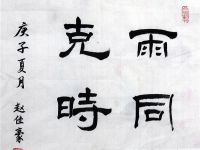 雨同
克時
庚子夏月 赵仕豪